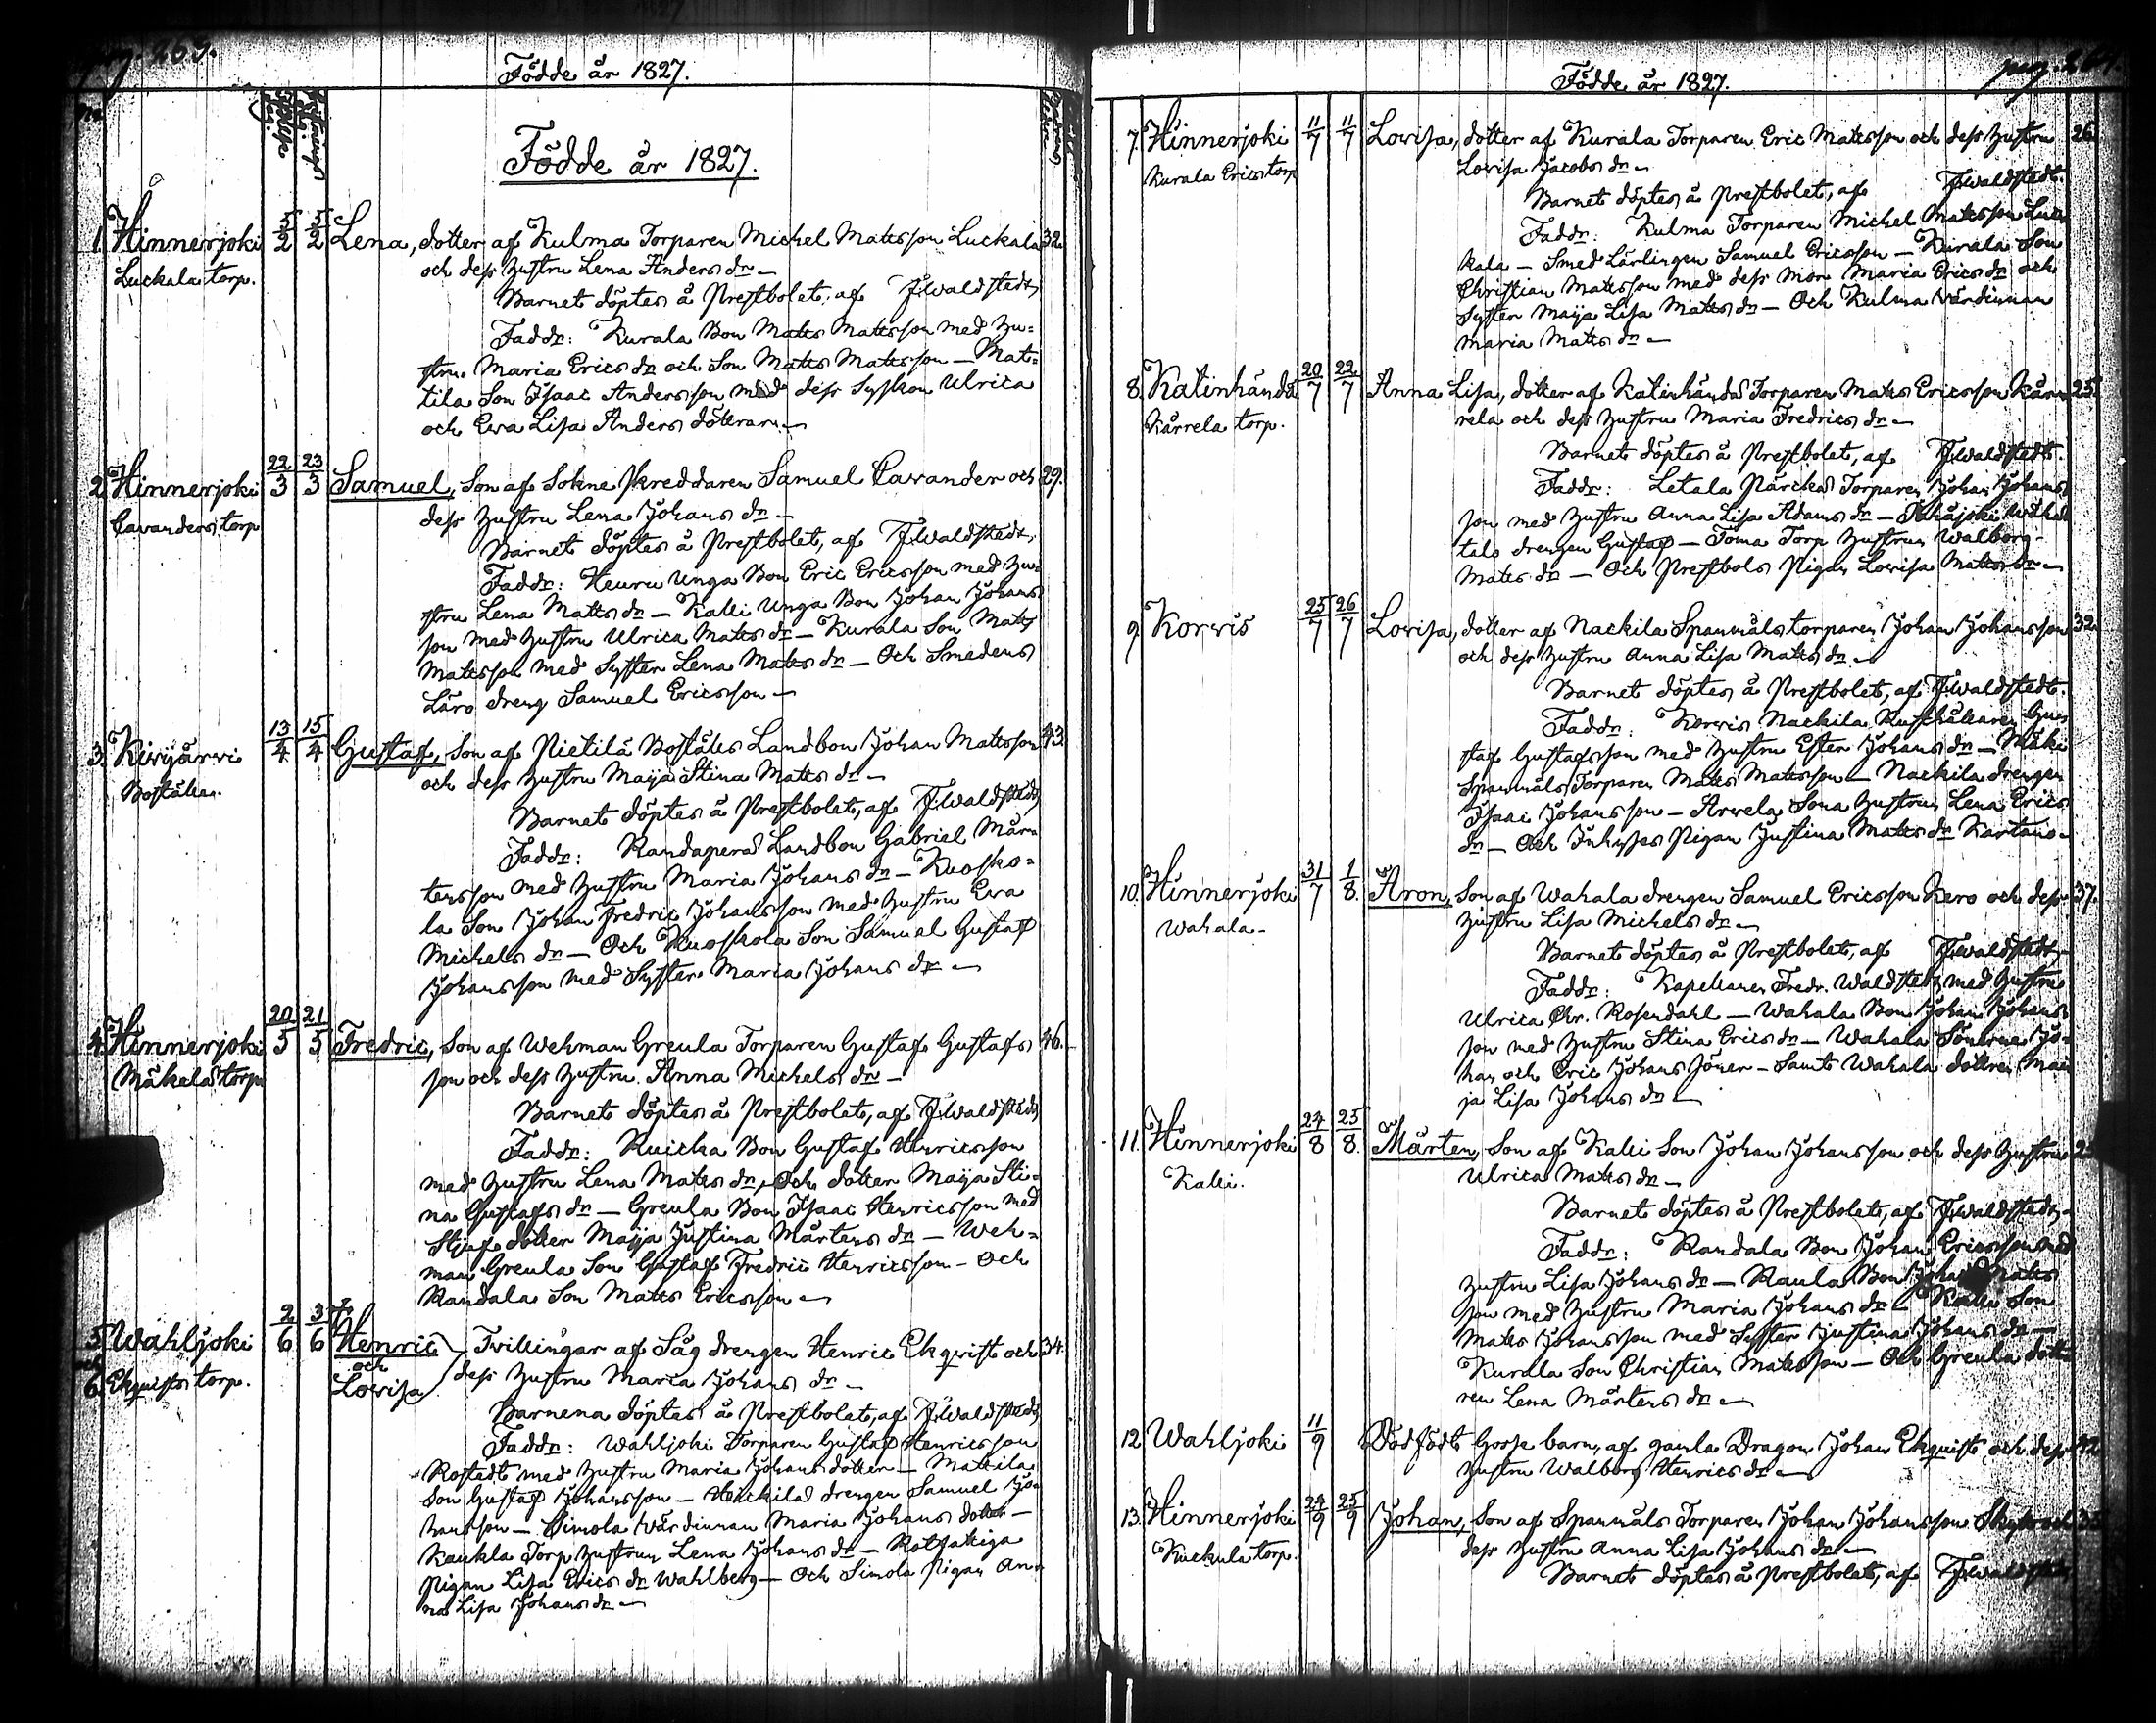 pag. 263.
Födde år 1827.
Födde år 1827.
1. Hinnerjoki 5/2 5/2 Lena, dotter af Kulma Torparen Michel Matsson Luckala 32.
Luckala torp. och dess hustru Lena Anders dr —
Barnet döptes å Prestbolet, af F. Waldstedt,
Faddr: Kurala Bon Matts Mattsson med hu=
stru Maria Erics dr och Son Matts Mattsson — Mat=
tila Son Isaac Andersson med dess Syskon Ulrica
och Ewa Lisa Anders döttrar —
2. Hinnerjoki 22/3 23/3 Samuel, Son af Sokne skreddaren Samuel Cavander och 29.
Cavanders torp dess hustru Lena Johans dr —
Barnet döptes å Prestbolet, af F. Waldstedt,
Faddr: Heuru Unga Bon Eric Ericsson med hu=
stru Lena Matts dr — Kalli Unga Bon Johan Johans
son med hustru Ulrica Matts dr — Kurala Son Matts
Matsson med Syster Lena Matts dr — Och Smedens
Läro dreng Samuel Ericsson —
3. Kivijärvi 13/4 15/4 Gustaf, Son af Pietilä Boställes Landbon Johan Mattsson 43.
Bostället. och dess hustru Maija Stina Matts dr —
Barnet döptes å Prestbolet, af F. Waldstedt
Faddr: Randaperä Landbon Gabriel Mår=
tensson med hustru Maria Johans dr — Kuosko=
la Son Johan Fredric Johansson med hustru Eva
Michels dr — Och Kuoskola Son Samuel Gustaf
Johansson med Syster Maria Johans dr —
4. Hinnerjoki 20/5 21/5 Fredric, Son af Wehman Greula Torparen Gustaf Gustafs 46.
Mäkelä torp son och dess hustru Anna Michels dr —
Barnet döptes å Prestbolet, af F. Waldstedt
Faddr: Ruicka Bon Gustaf Henricsson
med hustru Lena Matts dr, Och dotter Maija Sti=
na Gustafs dr — Greula Bon Isaac Henricsson med
Stjuf dotter Maija Justina Mårtens dr — Weh=
man Greula Son Gustaf Fredric Henricsson — Och
Randala Son Matts Ericsson —
5. Wahljoki 2/6 3/6 Henric Tvillingar af Såg drengen Henric Ekqvist och 34.
och 6. Ekquists torp. och Lovisa dess hustru Maria Johans dr —
Barnena döptes å Prestbolet, af F. Waldstedt
Faddr: Wahljoki Torparen Gustaf Henricsson
Rostedt med hustru Maria Johans dotter — Mattila
Son Gustaf Johansson — Heickilä drengen Samuel Jo=
hansson — Simola Värdinnan Maria Johans dotter —
Kaukla Torp hustrun Lena Johans dr —
Pigan Lisa Erics dr Wahlberg — Och Simola Pigan An=
na Lisa Johans dr —
pag. 264.
Födde år 1827.
7. Hinnerjoki 11/7 11/7 Lovisa, dotter af Kurala Torparen Eric Mattsson och dess hustru 26.
Kurala Erics torp Lovisa Jacobs dr —
Barnet döptes å Prestbolet, af F. Waldstedt.
Faddr: Kulma Torparen Michel Matsson Luc=
kala — Smed Lärlingen Samuel Ericsson — Kurala Son
Christian Matsson med dess Mor Maria Erics dr och
Syster Maija Lisa Matts dr — Och Kulma Värdinnan
Maria Matts dr —
8. Katinhändä 20/7 22/7 Anna Lisa, dotter af Katinhändä Torparen Matts Ericsson Kär= 25.
Kärrela torp. rela och dess hustru Maria Fredrics dr —
Barnet döptes å Prestbolet, af F. Waldstedt.
Faddr: Letala Torparen Johan Johans
son med hustru Anna Lisa Adams dr —
talo drengen Gustaf — Toma Torp hustrun Walborg
Matts dr — Och Prestbols Pigan Lovisa Matts dr —
9. Korvis 25/7 26/7 Lovisa, dotter af Nackila Spanmåls torparen Johan Johansson 32.
och dess hustru Anna Lisa Matts dr —
Barnet döptes å Prestbolet, af F. Waldstedt.
Faddr: Korvis Nackila Rusthållaren Gu=
staf Gustafsson med hustru Ester Johans dr — Mäki
Spanmåls Torparen Matts Mattsson — Nackila drengen
Isaac Johansson — Arvela Sona hustrun Lena Erics
dr — Och Pigan Justina Matts dr Kartano —
10. Hinnerjoki 31/7 1/8. Aron, Son af Wahala drengen Samuel Ericsson Kero och dess 37.
Wahala — hustru Lisa Michels dr —
Barnet döptes å Prestbolet, af F. Waldstedt,
Faddr: Kapellanen Fredr. Waldstedt med hustru
Ulrica Chr. Rosendahl — Wahala Bon Johan Johans
son med hustru Stina Erics dr — Wahala Sönerne Jo=
han och Eric Johans Söner — Samt Wahala dottren Mai
ja Lisa Johans dr —
11. Hinnerjoki 24/8 25/8. Mårten, Son af Kalli Son Johan Johansson och dess hustru
Kalli. Ulrica Matts dr —
Barnet döptes å Prestbolet, af F. Waldstedt.
Faddr: Randala Bon Johan Ericsson med
hustru Lisa Johans dr — Raula Bon Johan Matts
son med hustru Maria Johans dr — Kalli Son
Matts Johansson med Syster Justina Johans dr —
Kurala Son Christian Matsson — Och Greula dott
ren Lena Mårtens dr —
12. Wahljoki 11/9 Dödfödt Gosse barn, af gamla Dragon Johan Ekquist och dess 42.
hustru Walborg Henrics dr —
13. Hinnerjoki 24/9 25/9 Johan, Son af Spanmåls Torparen Johan Johansson och
Kuckula torp. dess hustru Anna Lisa Johans dr —
Barnet döptes å Prestbolet, af F. Waldstedt